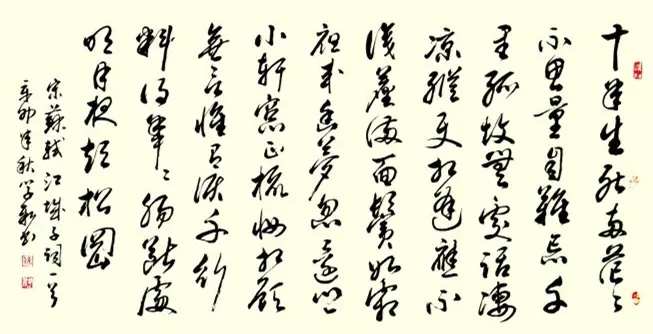 十年生死兩茫々
不思量自難忘千
里孤墳無處話凄
涼縱使相逢應不
識塵滿面鬢如霜
夜来幽夢忽還鄉
小軒窗正梳妝相顧
無言惟有淚千行
料得年々腸斷處
明月夜短松岡
宋蘇軾江城子詞一首
辛卯年秋學書